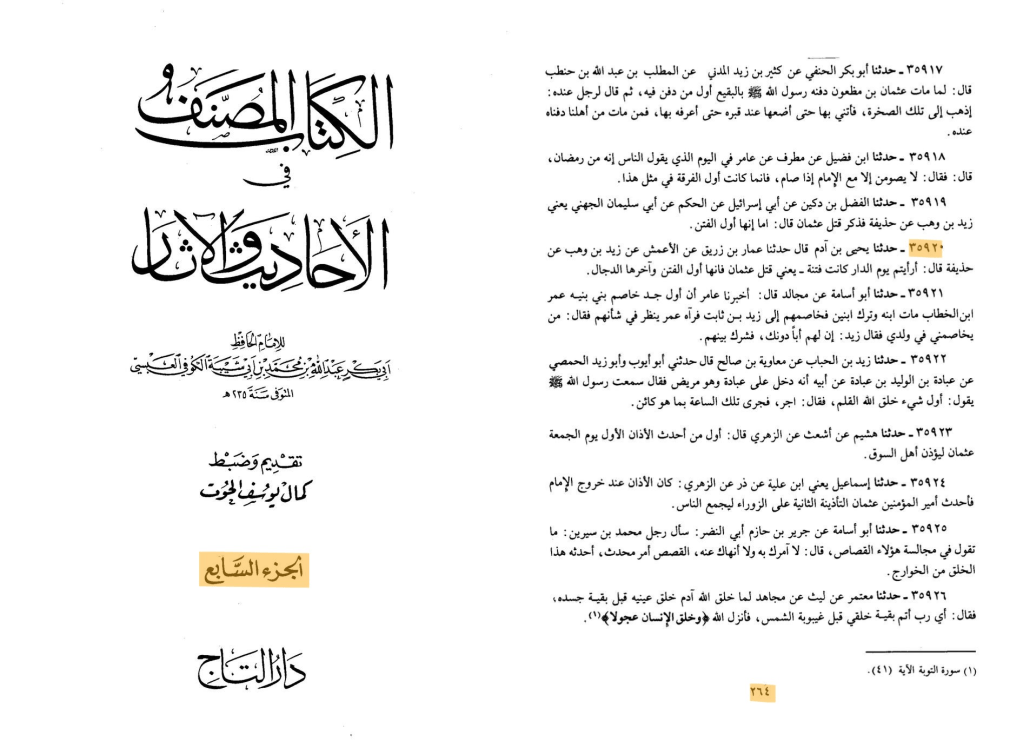 ٣٥٩١٧ ـ حدثنا أبو بكر الحنفي عن كثير بن زيد المدني عن المطلب بن عبد الله بن حنطب
قال: لما مات عثمان بن مظعون دفنه رسول الله ﷺ بالبقيع أول من دفن فيه، ثم قال لرجل عنده:
إذهب إلى تلك الصخرة، فأتني بها حتى أضعها عند قبره حتى أعرفه بها، فمن مات من أهلنا دفناه
عنده.
٣٥٩١٨ ـ حدثنا ابن فضيل عن مطرف عن عامر في اليوم الذي يقول الناس إنه من رمضان،
قال: فقال: لا يصومن إلا مع الإمام إذا صام، فانما كانت أول الفرقة في مثل هذا.
٣٥٩١٩ ـ حدثنا الفضل بن دكين عن أبي إسرائيل عن الحكم عن أبي سليمان الجهني يعني
زيد بن وهب عن حذيفة فذكر قتل عثمان قال: اما إنها أول الفتن.
٣٥٩٢٠ ـ حدثنا يحيى بن آدم قال حدثنا عمار بن زريق عن الأعمش عن زيد بن وهب عن
حذيفة قال: أرأيتم يوم الدار كانت فتنة ـ يعني قتل عثمان فانها أول الفتن وآخرها الدجال.
٣٥٩٢١ ـ حدثنا أبو أسامة عن مجالد قال: أخبرنا عامر أن أول جد خاصم بني بنيه عمر
ابن الخطاب مات ابنه وترك ابنين فخاصمهم إلى زيد بن ثابت فرآه عمر ينظر في شأنهم فقال: من
يخاصمني في ولدي فقال زيد: إن لهم أباً دونك، فشرك بينهم.
٣٥٩٢٢ ـ حدثنا زيد بن الحباب عن معاوية بن صالح قال حدثني أبو أيوب وأبو زيد الحمصي
عن عبادة بن الوليد بن عبادة عن أبيه أنه دخل على عبادة وهو مريض فقال سمعت رسول الله ﷺ
يقول: أول شيء خلق الله القلم، فقال: اجر، فجرى تلك الساعة بما هو كائن.
٣٥٩٢٣ ـ حدثنا هشيم عن أشعث عن الزهري قال: أول من أحدث الأذان الأول يوم الجمعة
عثمان ليؤذن أهل السوق.
٣٥٩٢٤ ـ حدثنا إسماعيل يعني ابن علية عن ذر عن الزهري: كان الأذان عند خروج الإمام
فأحدث أمير المؤمنين عثمان التأذينة الثانية على الزوراء ليجمع الناس.
٣٥٩٢٥ ـ حدثنا أبو أسامة عن جرير بن حازم أبي النضر: سأل رجل محمد بن سيرين: ما
تقول في مجالسة هؤلاء القصاص، قال: لا آمرك به ولا أنهاك عنه، القصص أمر محدث، أحدثه هذا
الخلق من الخوارج.
٣٥٩٢٦ ـ حدثنا معتمر عن ليث عن مجاهد لما خلق الله آدم خلق عينيه قبل بقية جسده،
فقال: أي رب أتم بقية خلقي قبل غيبوبة الشمس، فأنزل الله ﴿وخلق الإنسان عجولا﴾(١).
(١) سورة التوبة الآية (٤١).
٢٦٤
الكتاب المصنف
في
الأحاديث والآثار
للإمام الحافظ
أبي بكر عبد الله بن محمد بن أبي شيبة الكوفي العبسي
المتوفى سنة ٢٣٥ هـ
تقديم وضبط
كمال يوسف الحوت
الجزء السابع
دار التاج